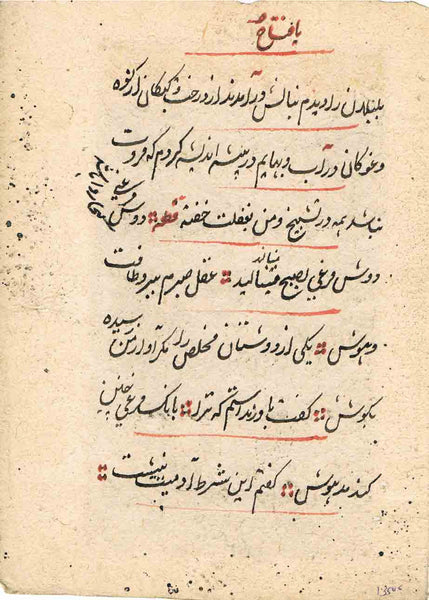 یا فتاح
بلبلان را دیدم بنالش درآمدند از درخت و کبکان از کوه
و غوکان در آب و بهایم در بیشه اندیشه کردم که مروت
نباشد همه در تسبیح و من بغفلت خفته قطعه دوش
دوش مرغی بصبح مینالید عقل صبرم ببرد طاقت
و هوش یکی از دوستان مخلص را مگر آواز من رسیده
بگوش گفت باور نداستم که ترا بانک مرغی چنین
کند مدهوش گفتم این شرط آدمیت نیست